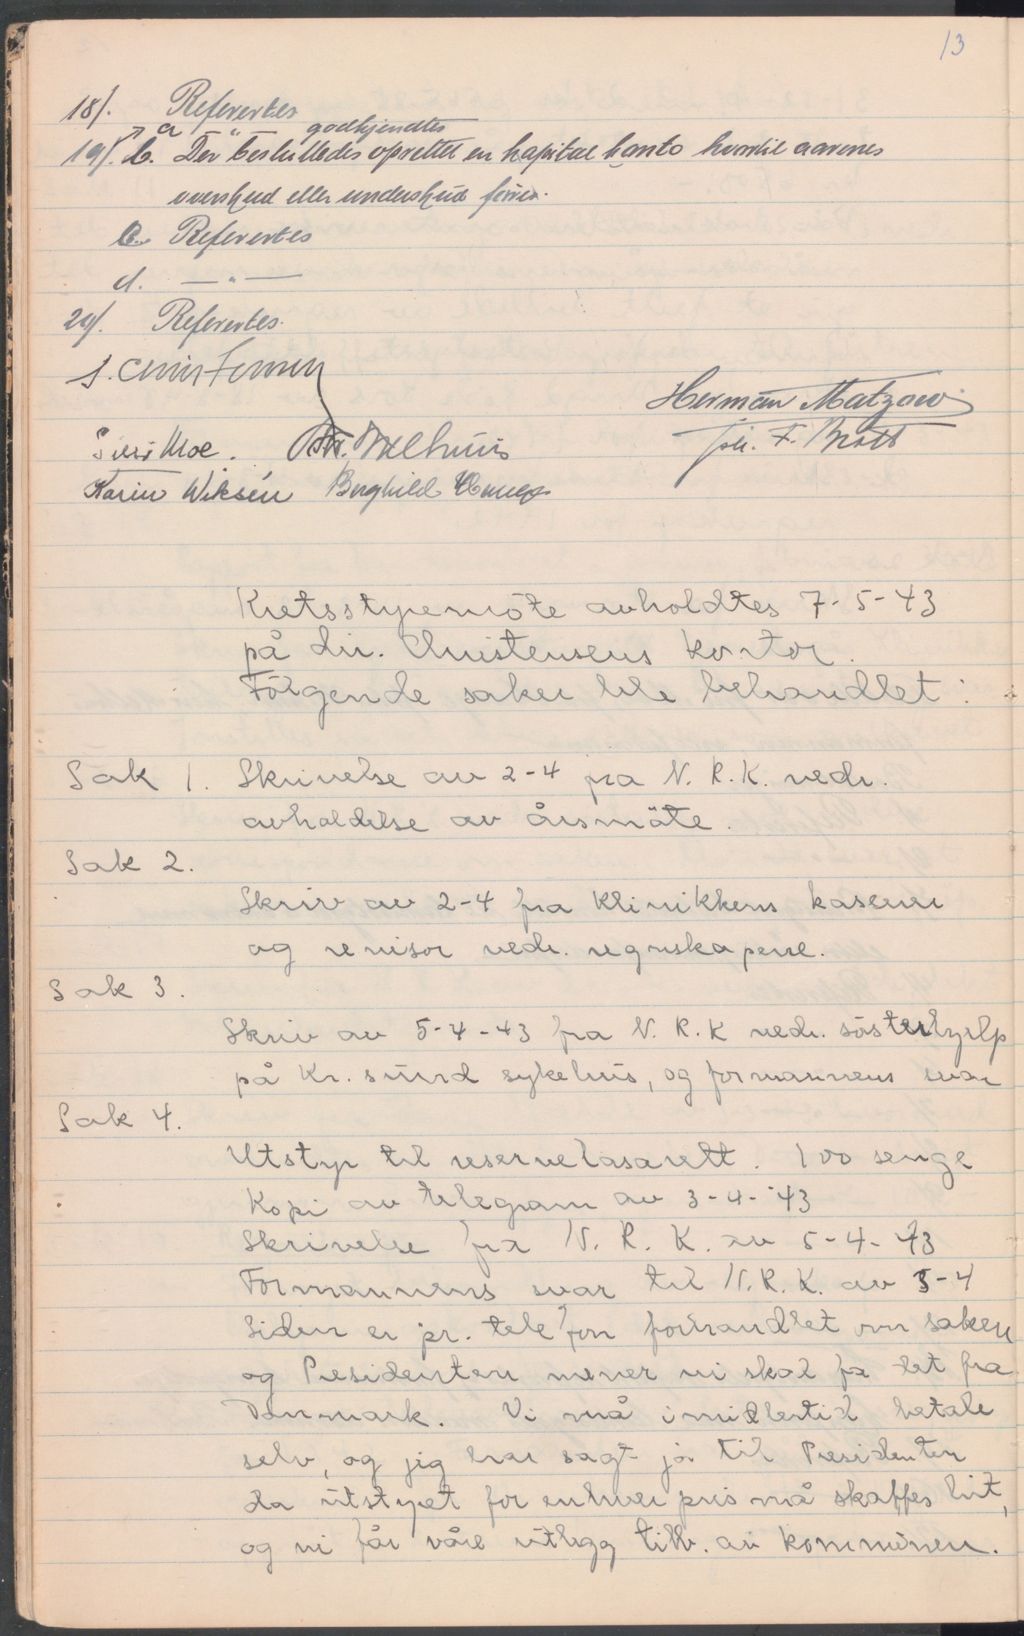 13
18/. Referertes
a — " — godkjendtes
19/. b. Der besluttedes oprettet en kapital konto hvortil aarenes
overskud eller underskud føres.
c. Referertes
d. — " —
20/. Referertes.
S. Christensen
Herman Matzow
Joh. F. Bratt
Siri Moe. Chr. Wilhums
Karin Wiksén Borghild
Kretsstyremöte avholdtes 7-5-43
på dir. Christensens kontor.
Fölgende saker ble behandlet:
Sak 1. Skrivelse av 2-4 fra N. R. K. vedr.
avholdelse av årsmöte.
Sak 2.
Skriv av 2-4 fra Klinikkens kaserer
og revisor vedr. regnskapene.
Sak 3.
Skriv av 5-4-43 fra N. R. K vedr. sösterhjelp
på Kr. sund sykehus, og formannens svar
Sak 4.
Utstyr til reservelasarett. 100 senge
Kopi av telegram av 3-4-43
Skrivelse fra N. R. K. av 5-4-43
Formannens svar til N. R. K. av 5-4
Siden er pr. telefon forhandlet om saken
og Presidenten mener vi skal få det fra
Danmark. Vi må imidlertid betale
selv, og jeg har sagt ja til Presidenten
da utstyret for enhver pris må skaffes hit,
og vi får våre utlegg tilb. av kommunen.